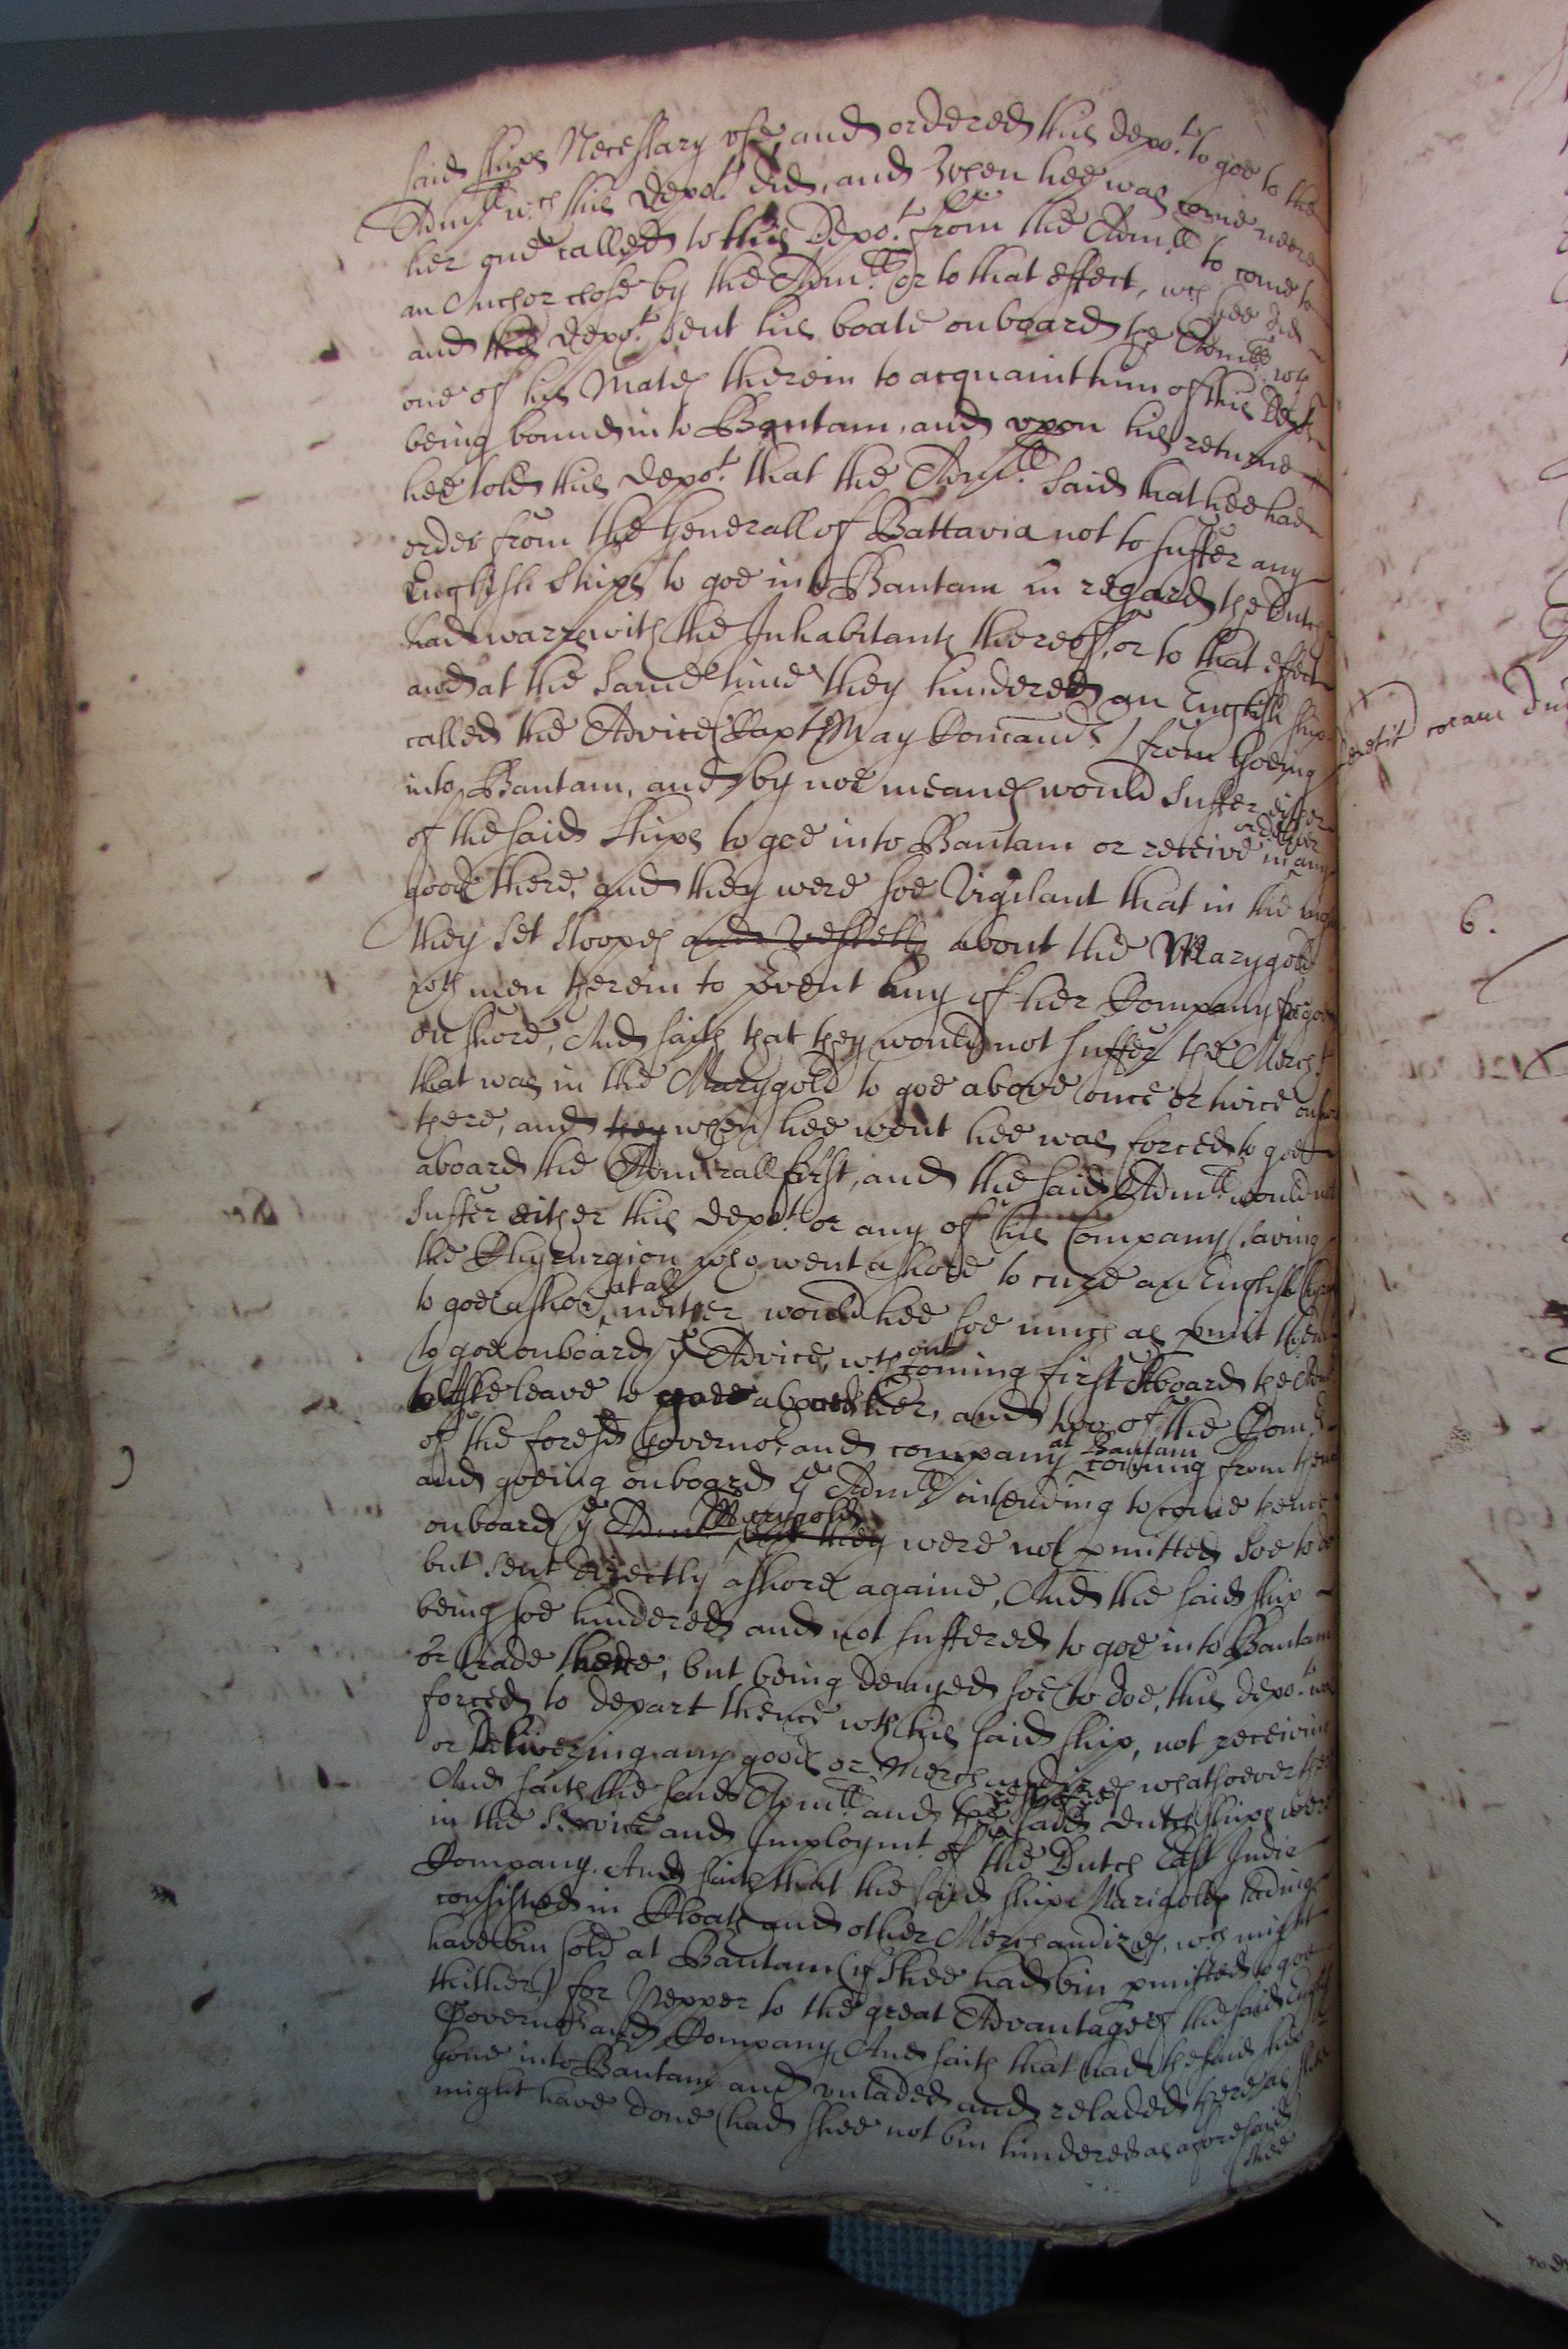 said shipps Necessary use, and ordered this depo.t to goe to the
Adm.ll w.ch this Depo.t did, and when hee was come neere
her one called to this Depo.t from the Adm.ll to come to
an Anchor close by the Adm.ll or to that effect, wch hee did
and this depo.t sent his boate onboard the Adm.ll wth
one of his Mates therein to acquaint him of this Depo.ts
being bound into Bantam, and upon his returne
hee told this depo.t that the Adm.ll said that hee had
order from the Generall of Battavia not to suffer any
English ships to goe into Bantam in regard the Dutch
had warre with the Inhabitants thereof, or to that effect
and at the same time they hindered an English ship
called the Advice (Capt May Comand.r) from goeing
into Bantam, and by noe meanes would suffer either
of the said ships to goe into Bantam or receive in any
or deliver
goods there, and they were soe Vigilant that in the night
they set sloopes and vessells about the Marygold
with men therein to prvent any of her Company to goe
on shore, And saith that they would not suffer the Merch.t
that was in the Marygold to goe above once or twice on shore
there, and they when hee went hee was forced to goe
aboard the Admirall first, and the said Adm.ll would not
suffer either this depo.t or any of his Company (saving
the Chyrurgion who went ashore to cure an English
to goe ashore at all, neither would hee soe much as pmit them
to goe onboard ye Advice, wth out coming first Aboard the Adm.ll
to aske leave to goe aboard her, and two of the Comp.
of the foresd Governor and company at Bantam coming from thence
and goeing onboard ye Adm.ll intending to come thence
onboard ye Adm.ll Marygold but they were not pmitted soe to do
but sent directly ashore againe, And the said ship
being soe hindered and not suffered to goe into Bantam
or trade there, but being denyed soe to doe, this depo.t was
forced to depart thence wth his said ship, not receiving
or delivering any goods or Merchandizes whatsoever there
And saith the said Adm.ll and the said resp.ive Dutch ships were
in the service and Imploymt of the Dutch East Indie
Company. And saith that the said ship Marigolds lading
consisted in Cloath and other Merchandizes, wch might
have bin sold at Bantam (if shee had bin pmitted to goe
thither) for Pepper to the great Advantage of the said English
Governor and Company And saith that had the said ship
gone into Bantam and unladed and reladed there as shee
might have done (had shee not bin hindered as aforesaid
shee
exetit coram
6.